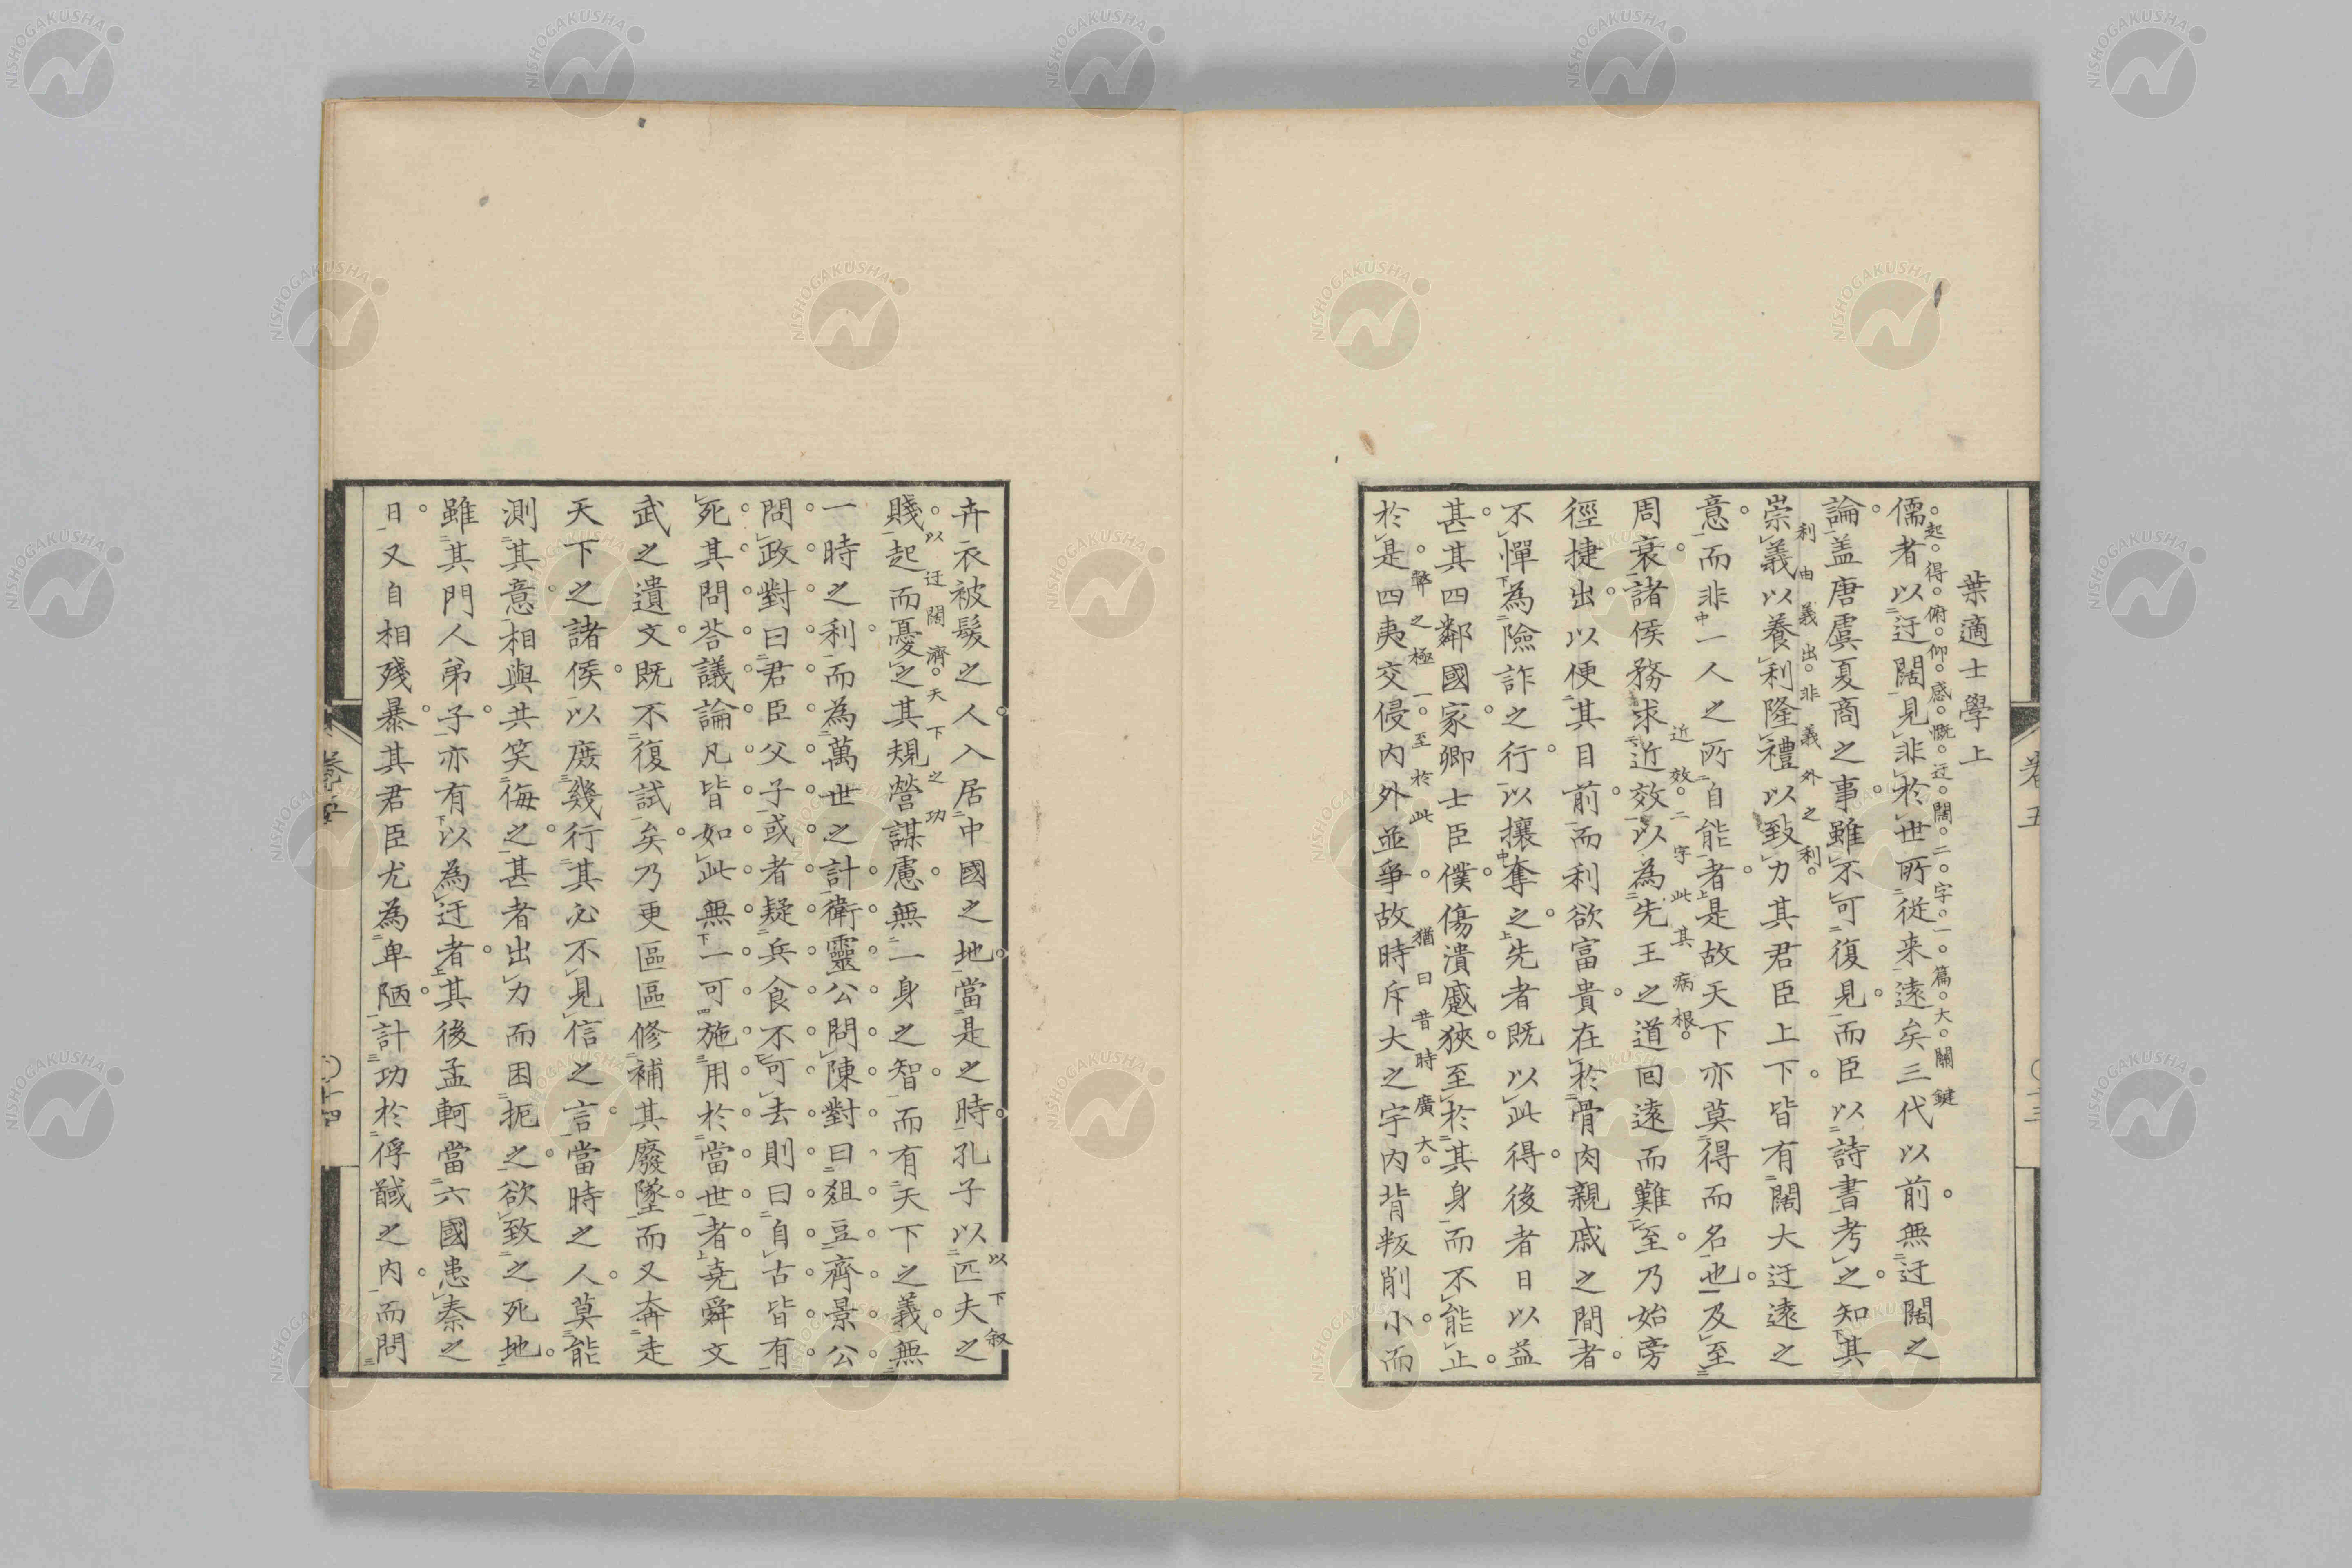 葉適士學上
儒者以迂闊見非於世所從来遠矣三代以前無迂闊之
起得俯仰感慨迂闊二字一篇大關鍵
論盖唐虞夏商之事雖不可復見而臣以詩書考之知其
崇義以養利隆禮以致力其君臣上下皆有闊大迂遠之
利由義出非義外之利
意而非一人之所自能者是故天下亦莫得而名也及至
周衰諸侯務求近效以為先王之道回遠而難至乃始旁
近效二字此其病根
徑捷出以便其目前而利欲富貴在於骨肉親戚之間者
不憚為險詐之行以攘奪之先者既以此得後者日以益
甚其四鄰國家卿士臣僕傷潰蹙狹至於其身而不能止
於是四夷交侵内外並爭故時斥大之宇内背叛削小而
弊之極一至於此
猶曰昔時廣大
卉衣被髮之人入居中國之地當是之時孔子以匹夫之
以下叙
賤起而憂之其規營謀慮無一身之智而有天下之義無
以迂闊濟天下之功
一時之利而為萬世之計衛靈公問陳對曰俎豆齊景公
問政對曰君臣父子或者疑兵食不可去則曰自古皆有
死其問荅議論凡皆如此無一可施用於當世者堯舜文
武之遺文既不復試矣乃更區區修補其廢墜而又奔走
天下之諸侯以庶幾行其必不見信之言當時之人莫能
測其意相與共笑侮之甚者出力而困扼之欲致之死地
雖其門人弟子亦有以為迂者其後孟軻當六國患秦之
日又自相殘暴其君臣尤為卑陋計功於俘馘之内而問
卷五
十三
十四
NISHOGAKUSHA